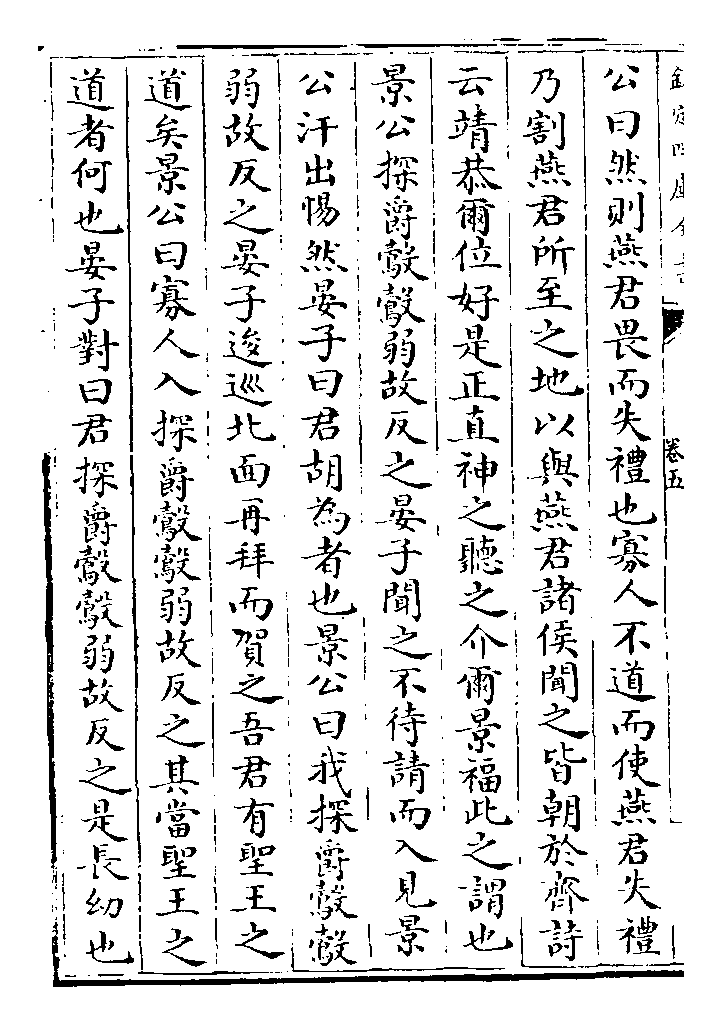 欽定四庫全書
卷五
公曰然則燕君畏而失禮也寡人不道而使燕君失禮
乃割燕君所至之地以與燕君諸侯聞之皆朝於齊詩
云靖恭爾位好是正直神之聽之介爾景福此之謂也
景公探爵鷇鷇弱故反之晏子聞之不待請而入見景
公汗出惕然晏子曰君胡為者也景公曰我探爵鷇鷇
弱故反之晏子逡巡北面再拜而賀之吾君有聖王之
道矣景公曰寡人入探爵鷇鷇弱故反之其當聖王之
道者何也晏子對曰君探爵鷇鷇弱故反之是長幼也